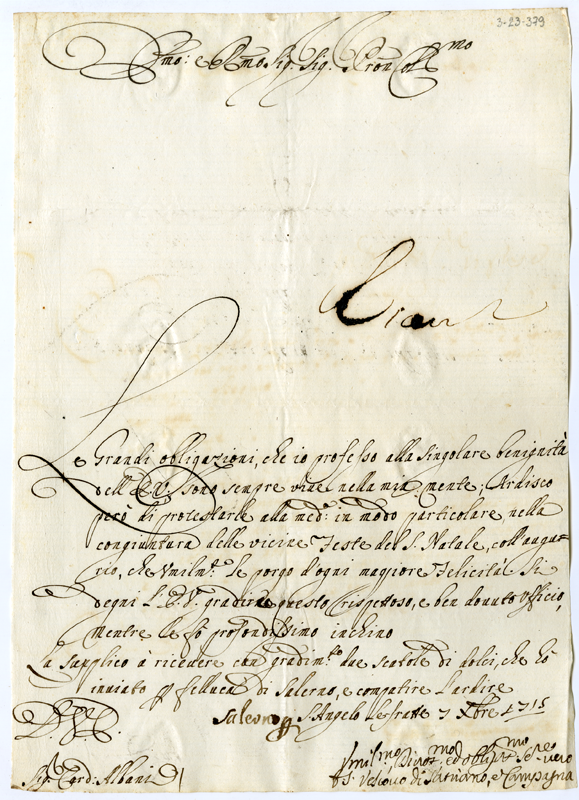 3-23-379
Emo: e Rmo Sig. Sig. Pron Coll^mo
Le Grandi obligazioni, che io professo alla singolare benignità
dell' E.V. sono sempre vive nella mia mente; Ardisco
però di protestarle alla med: in modo particolare nella
congiuntura delle vicine Feste del S. Natale, coll'augu-
rio, che Vmilm.te Le porgo d'ogni magiore Felicità. Si
degni L'E.V. gradire questo rispettoso, e ben dovuto Vfficio,
mentre le fò profondissimo inchino
La supplico à ricevere con gradim.to due scatole di dolci, che hò
inviato p felluca di Salerno, e compatire L'ardire
D.V.E.
S. Angelo Le fratte 7 Xbre 1715
Vmil^mo Divot^mo, ed oblig^mo Ser^re vero
Il Vescovo di Satriano, e Campagna
Sig. Card: Albani